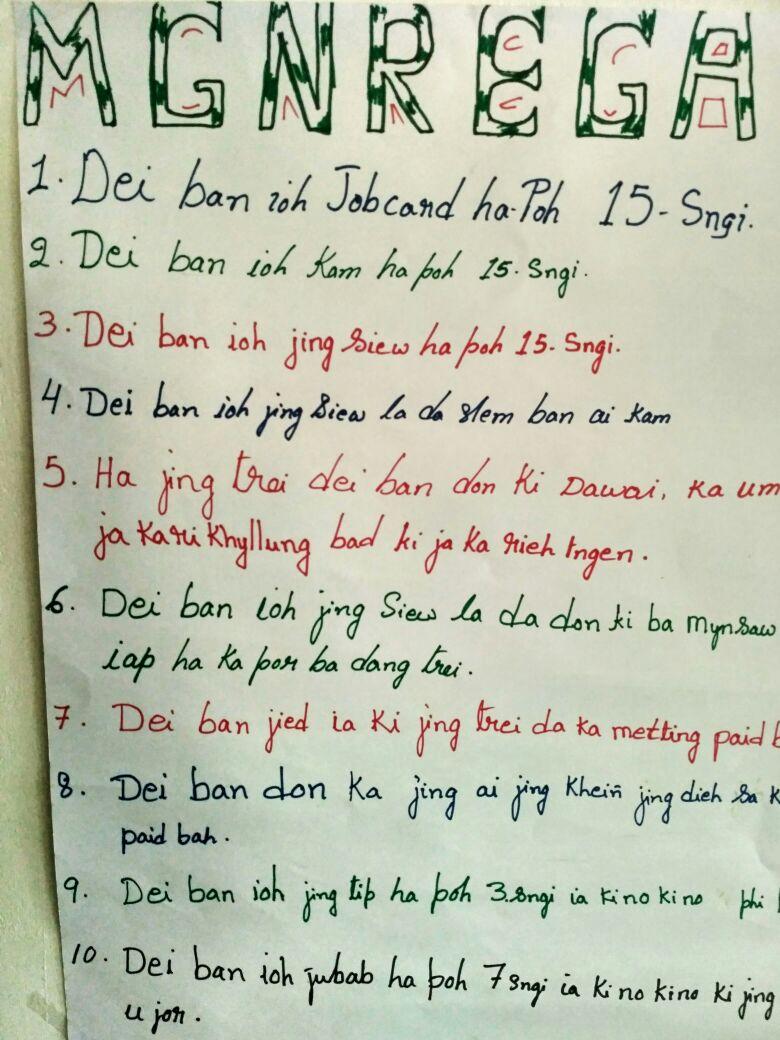 MGNREGA
1. Dei ban ioh Jobcard ha-Poh 15-Sngi.
2. Dei ban ioh Kam ha poh 15. Sngi.
3. Dei ban ioh jing siew ha poh 15- Sngi.
4. Dei ban ioh jing siew la da slem ban ai kam
5. Ha jing trei dei ban don ki Dawai, ka um
ja ka ri khyllung bad ki ja ka rieh tngen.
6. Dei ban ioh jing Siew la da don ki ba mynsaw
iap ha ka por ba dang trei.
7. Dei ban jied ia ki jing trei da ka metting paid b
8. Dei ban don ka jing ai jing khein jing dieh sa k
paid bah.
9. Dei ban ioh jing tip ha poh 3.sngi ia kino kino phi
10. Dei ban ioh jubab ha poh 7 sngi ia ki no kino ki jing
u jor.